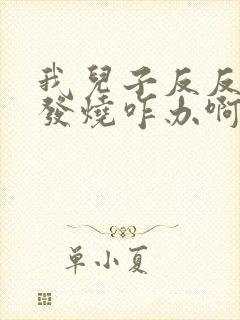 我兒子反反
發燒咋办啊
单小夏